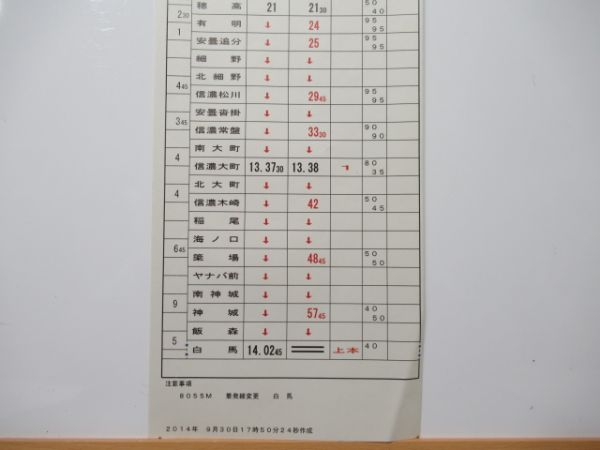 穂高 21 21 30 50 40
2 30
有明 ↓ 24 95 95
1
安曇追分 ↓ 25 95 95
細野 ↓ ↓
北細野 ↓ ↓
4 45
信濃松川 ↓ 29 45 95 95
安曇沓掛 ↓ ↓
3 45
信濃常盤 ↓ 33 30 90 90
南大町 ↓ ↓
4
信濃大町 13.37 30 13.38 80 35
北大町 ↓ ↓
4
信濃木崎 ↓ 42 50 45
稲尾 ↓ ↓
海ノ口 ↓ ↓
6 45
簗場 ↓ 48 45 50 50
ヤナバ前 ↓ ↓
南神城 ↓ ↓
9
神城 ↓ 57 45 40 50
飯森 ↓ ↓
5
白馬 14.02 45 上本 40
注意事項
8055M 着発線変更 白馬
2014年 9月30日17時50分24秒作成